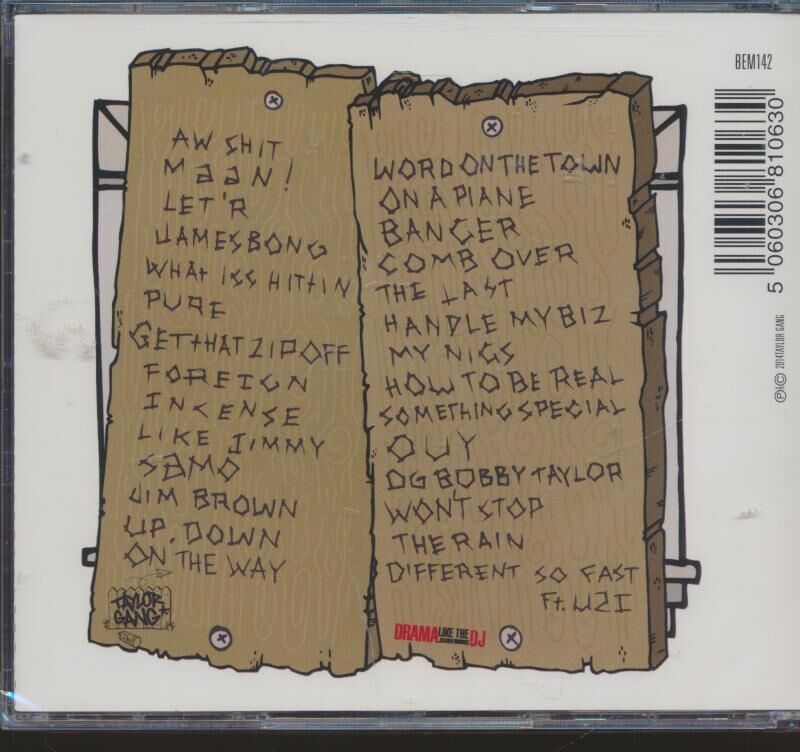 AW SHIT
MaaN!
LET'R
JAMES BONG
WHAt ISS HITTIN
PURE
GET tHAT ZIP OFF
FOREIGN
INCENSE
LIKE JIMMY
SAMO
JIM BROWN
UP, DOWN
ON THE WAY
TAYLOR
GANG
WORD ON THE TOWN
ON A PLANE
BANGER
COMB OVER
THE LAST
HANDLE MY BIZ
MY NIGS
HOW TO BE REAL
SOMETHING SPECIAL
OUY
OG BOBBY TAYLOR
WON'T STOP
THE RAIN
DIFFERENT SO FAST
Ft. UZI
DRAMA LIKE THE DJ
.COM
BEM142
5 060306 810630
℗© 2014 TAYLOR GANG